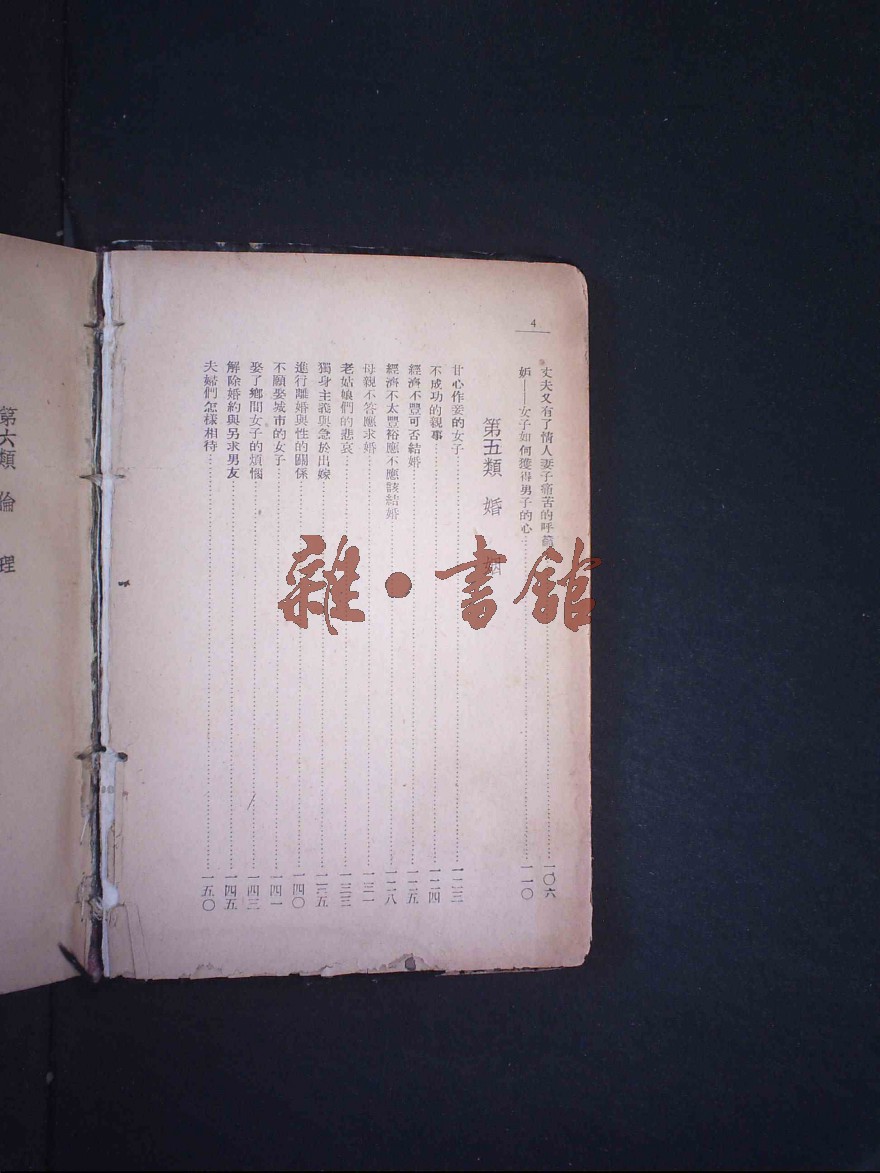 4
丈夫又有了情人妻子痛苦的呼籲……一〇六
妒——女子如何獲得男子的心……一一〇
第五類 婚 姻
甘心作妾的女子……一二三
不成功的親事……一二四
經濟不豐可否結婚……一二五
經濟不太豐裕應不應該結婚……一二八
母親不答應求婚……一三一
老姑娘們的悲哀……一三三
獨身主義與急於出嫁……一三五
進行離婚與性的關係……一四〇
不願娶城市的女子……一四一
娶了鄉間女子的煩惱……一四三
解除婚約與另求男友……一四五
夫婦們怎樣相待……一五〇
第六類 倫 理
雜·書館